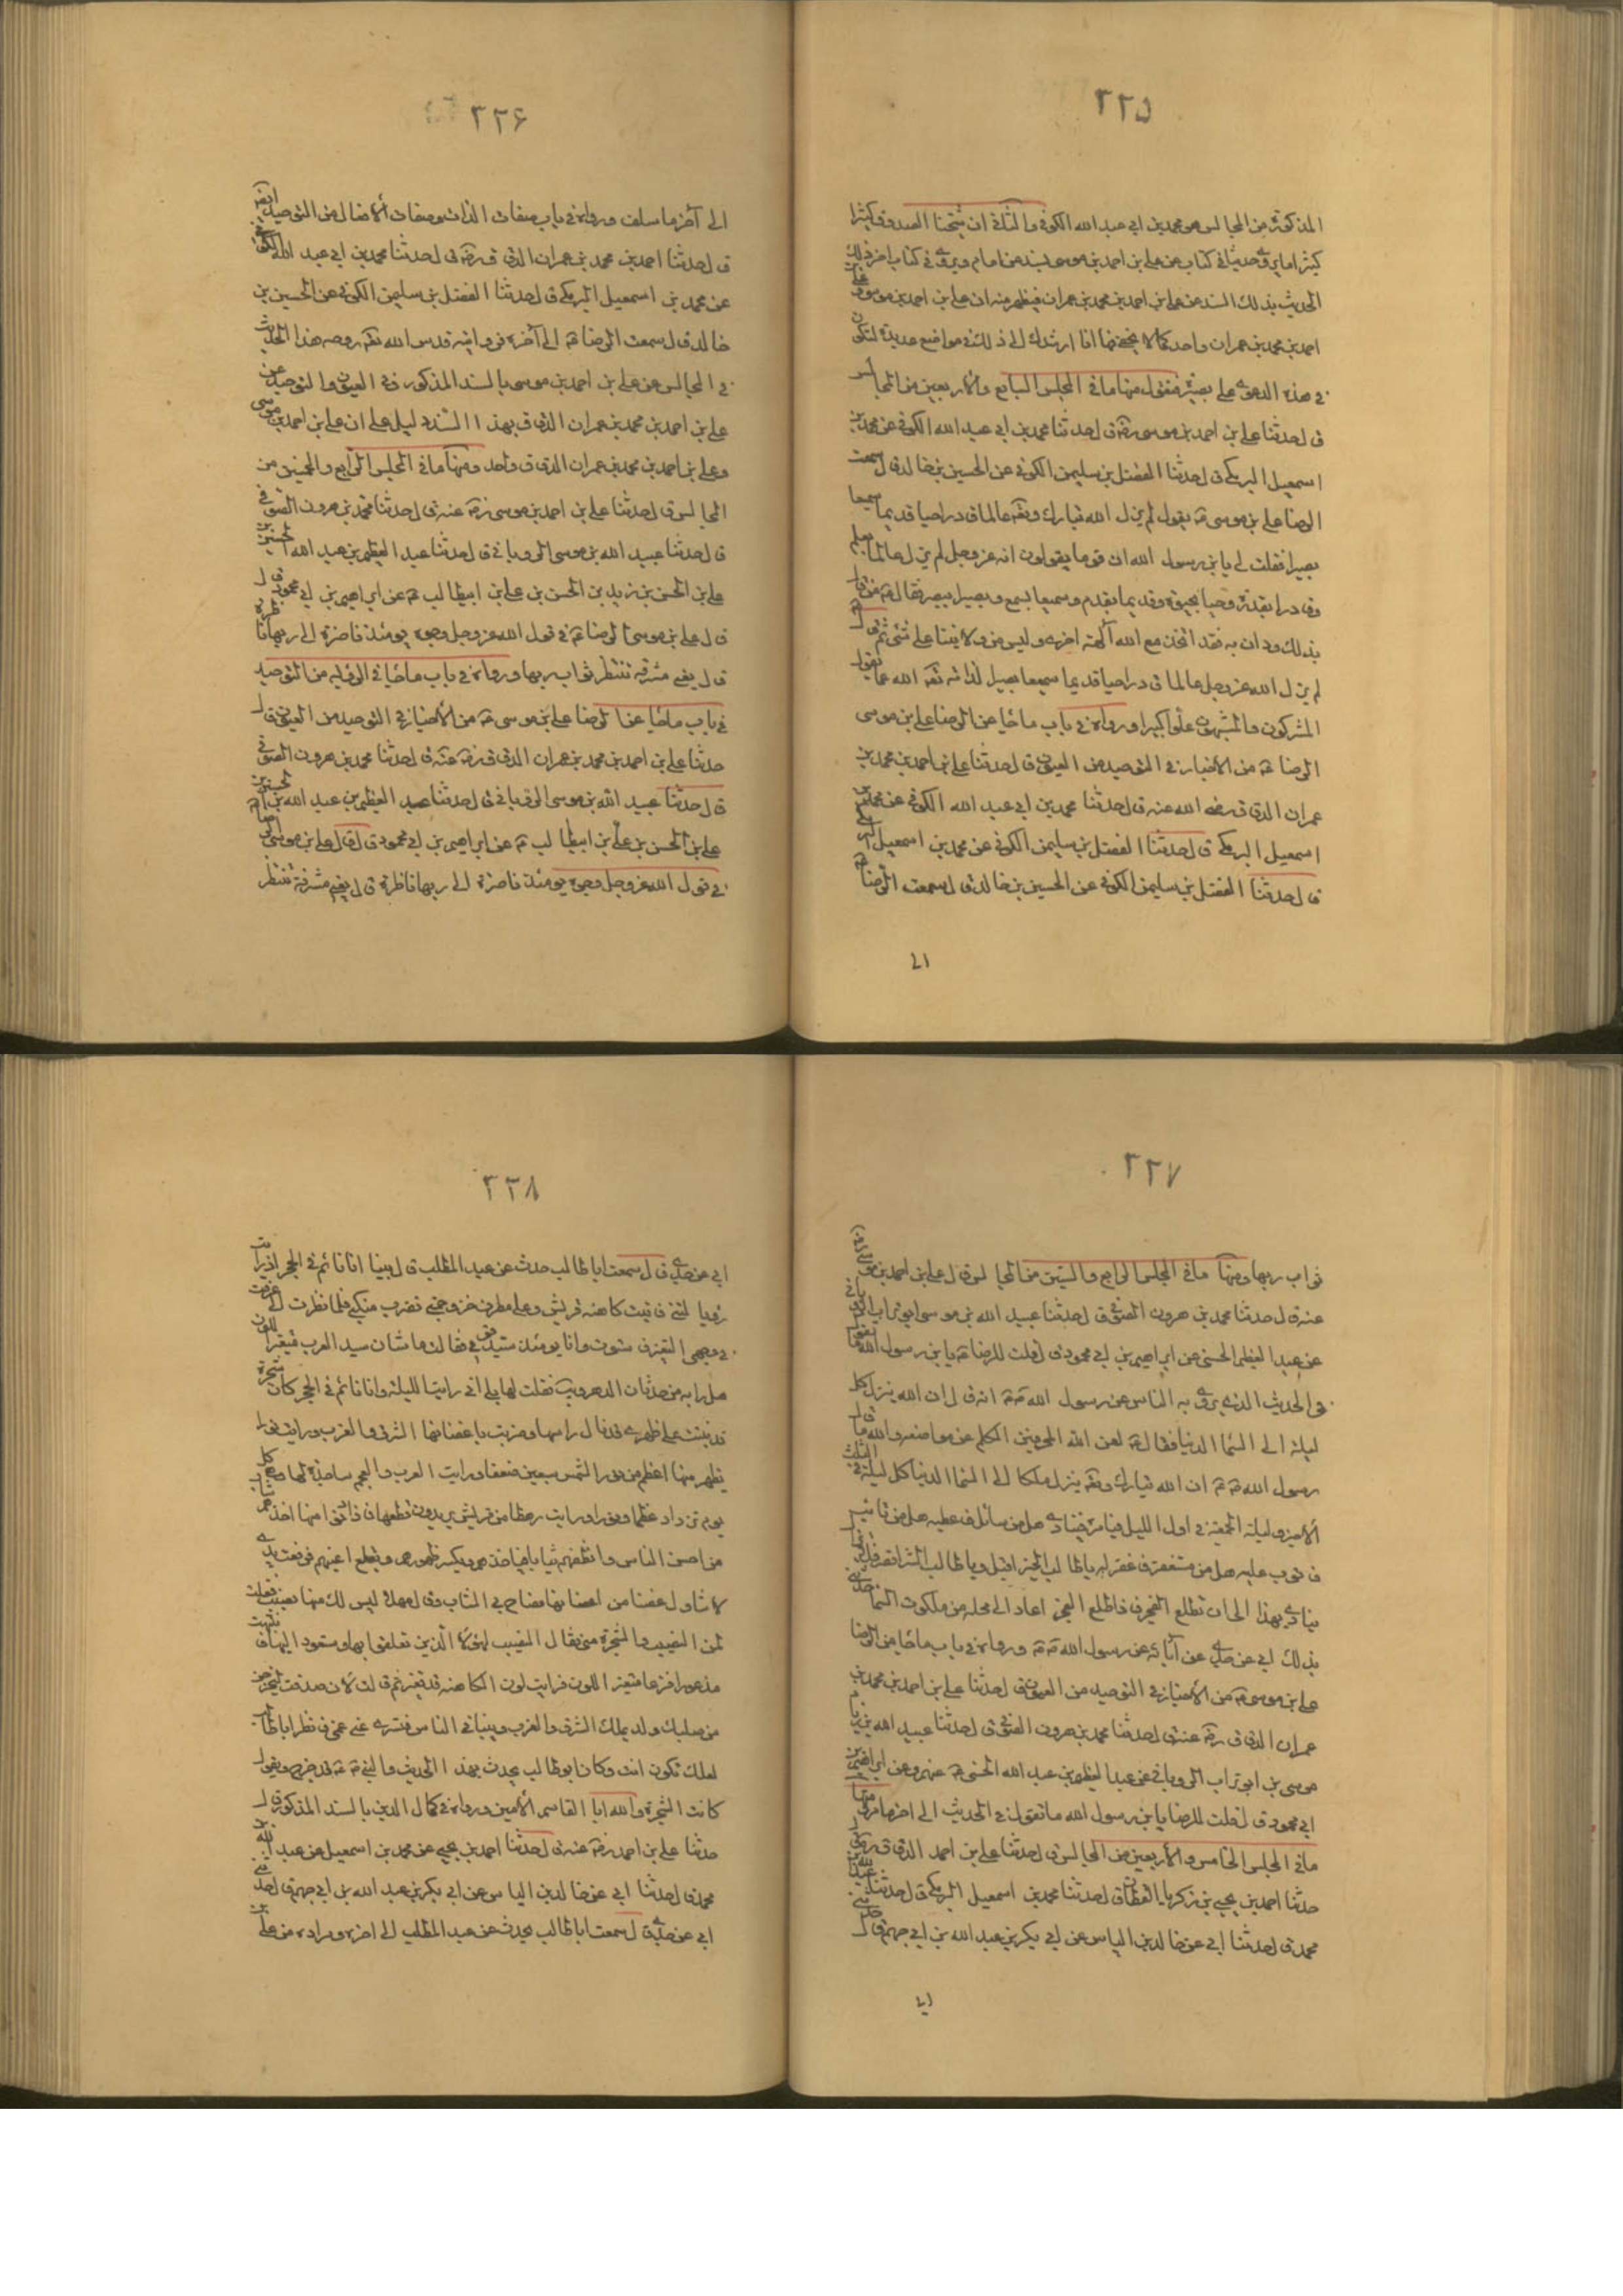 ٢٢٥
المذكورة من المجالس هو محمد بن ابي عبد الله الكوفي والثاني ان شيخنا الصدوق كثيرا
كثيرا ما يروي حديثا في كتاب عن علي بن احمد بن موسى بسند عن امام ويروي في كتاب اخر ذلك
الحديث بذلك السند عن علي بن احمد بن محمد بن عمران فيظهر منه ان علي بن احمد بن موسى وعلي بن
احمد بن محمد بن عمران واحد كما لا يخفى فها انا ارشدك الى ذلك في مواضع عديدة لتكون
في هذه الدعوى على بصيرة فنقول منها ما في المجلس السابع والاربعين من المجالس
قال حدثنا علي بن احمد بن موسى رضه قال حدثنا محمد بن ابي عبد الله الكوفي عن محمد بن
اسمعيل البرمكي قال حدثنا الفضل بن سليمن الكوفي عن الحسين بن خالد قال سمعت
الرضا علي بن موسى ع يقول لم يزل الله تبارك وتعه عالما قادرا حيا قديما سميعا
بصيرا فقلت له يا بن رسول الله ان قوما يقولون انه عز وجل لم يزل عالما بعلم
وقادرا بقدرة وحيا بحيوة وقديما بقدم وسميعا بسمع وبصيرا ببصر فقال ع من قال
بذلك ودان به فقد اتخذ مع الله آلهة اخرى وليس من ولايتنا على شئ ثم قال ع
لم يزل الله عز وجل عالما قادرا حيا قديما سميعا بصيرا لذاته تعه الله عما يقول
المشركون والمشبهون علوا كبيرا ورواه في باب ما جاء عن الرضا علي بن موسى
الرضا ع من الأخبار في التوحيد من العيون قال حدثنا علي بن احمد بن محمد بن
عمران الدقاق رضي الله عنه قال حدثنا محمد بن ابي عبد الله الكوفي عن محمد بن
اسمعيل البرمكي قال حدثنا الفضل بن سليمن الكوفي عن محمد بن اسمعيل البرمكي
قال حدثنا الفضل بن سليمن الكوفي عن الحسين بن خالد قال سمعت الرضا ع
الى
٢٢۶
الى آخر ما سلف ورواه في باب صفات الذات وصفات الأفعال من التوحيد ايضا
قال حدثنا احمد بن محمد بن عمران الدقاق رضه قال حدثنا محمد بن ابي عبد الله الكوفي
عن محمد بن اسمعيل البرمكي قال حدثنا الفضل بن سليمن الكوفي عن الحسين بن
خالد قال سمعت الرضا ع الى آخره فروايته قدس الله تعه روحه هذا الحديث
في المجالس عن علي بن احمد بن موسى بالسند المذكور وفي العيون والتوحيد عن
علي بن احمد بن محمد بن عمران الدقاق بهذا السند دليل على ان علي بن احمد بن موسى
وعلي بن احمد بن محمد بن عمران الدقاق واحد ومنها ما في المجلس الرابع والخمسين من
المجالس قال حدثنا علي بن احمد بن موسى رضه عنه قال حدثنا محمد بن هرون الصوفي
قال حدثنا عبيد الله بن موسى الروياني قال حدثنا عبد العظيم بن عبد الله الحسني بن
علي بن الحسن بن زيد بن الحسن بن علي بن ابيطالب ع عن ابراهيم بن ابي محمود قال
قال علي بن موسى الرضا ع في قول الله عز وجل وجوه يومئذ ناضرة الى ربها ناظرة
قال يعني مشرقة تنتظر ثواب ربها ورواه في باب ما جاء في الرؤية من التوحيد
في باب ما جاء عن الرضا علي بن موسى ع من الأخبار في التوحيد من العيون قال
حدثنا علي بن احمد بن محمد بن عمران الدقاق رضه عنه قال حدثنا محمد بن هرون الصوفي
قال حدثنا عبيد الله بن موسى الروياني قال حدثنا عبد العظيم بن عبد الله بن الحسين بن
علي بن الحسن بن علي بن ابيطالب ع عن ابراهيم بن ابي محمود قال قال علي بن موسى الرضا ع
في قول الله عز وجل وجوه يومئذ ناضرة الى ربها ناظرة قال يعني مشرقة تنتظر
٢٢٧
ثواب ربها ومنها ما في المجلس الرابع والستين من المجالس قال علي بن احمد بن موسى رضي
عنه قال حدثنا محمد بن هرون الصوفي قال حدثنا عبيد الله بن موسى ابو تراب الروياني
عن عبد العظيم الحسني عن ابراهيم بن ابي محمود قال قلت للرضا ع يا بن رسول الله ما تقول
في الحديث الذي يروى به الناس عن رسول الله ص انه قال ان الله ينزل كل
ليلة الى السماء الدنيا فقال ع لعن الله المحرفين الكلم عن مواضعه والله ما قال
رسول الله ص ان الله تبارك وتعه ينزل ملكا الى السماء الدنيا كل ليلة في الثلث
الأخير وليلة الجمعة في اول الليل فيامره فينادي هل من سائل فاعطيه هل من تائب
فاتوب عليه هل من مستغفر فاغفر له يا طالب الخير اقبل ويا طالب الشر اقصر فلا يزال
ينادي بهذا الى ان يطلع الفجر فاذا طلع الفجر عاد الى محله من ملكوت السماء حدثني
بذلك ابي عن جدي عن آبائه عن رسول الله ص ورواه في باب ما جاء من الرضا
علي بن موسى ع من الأخبار في التوحيد من العيون قال حدثنا علي بن احمد بن محمد بن
عمران الدقاق رضه عنه قال حدثنا محمد بن هرون الصوفي قال حدثنا عبيد الله بن
موسى بن ابو تراب الروياني عن عبد العظيم بن عبد الله الحسني رضه عنه وعن ابراهيم بن
ابي محمود قال قلت للرضا يا بن رسول الله ما تقول في الحديث الى اخر ما مر ومنها
ما في المجلس الخامس والأربعين من المجالس قال حدثنا علي بن احمد الدقاق رضه قال
حدثنا احمد بن يحيى بن زكريا القطان قال حدثنا محمد بن اسمعيل البرمكي قال حدثنا عبد الله بن
محمد قال حدثنا ابي عن خالد بن الياس عن ابي بكر بن عبد الله بن ابي جهم قال حدثني
ابي
٢٢٨
ابي عن جدي قال سمعت ابا طالب حدث عن عبد المطلب قال بينا انا نائم في الحجر اذ رايت
رؤيا هالتني فاتيت كاهنة قريش وعلي مطرف خز وجمتي تضرب منكبي فلما نظرت الي عرفت
في وجهي التغير فاستوت وانا يومئذ سيد قومي فقالت ما شان سيد العرب متغير اللون
هل رابه من حدثان الدهر ريب فقلت لها بلى اني رايت الليلة وانا نائم في الحجر كان شجرة
قد نبتت على ظهري قد نال راسها وضربت باغصانها الشرق والغرب ورايت نورا
يظهر منها اعظم من نور الشمس سبعين ضعفا ورايت العرب والعجم ساجدة لها وهي كل
يوم تزداد عظما ونورا ورايت رهطا من قريش يريدون قطعها فاذا دنوا منها اخذهم شاب
من احسن الناس وانظفهم ثيابا فياخذهم ويكسر ظهورهم ويقلع اعينهم فرفعت يدي
لاتناول غصنا من اغصانها فصاح بي الشاب وقال مهلا ليس لك منها نصيب فقلت
لمن النصيب والشجرة مني فقال النصيب لهؤلاء الذين تعلقوا بها وستعود اليها فانتبهت
مذعورا فزعا متغير اللون فرايت لون الكاهنة قد تغير ثم قالت لان صدقت ليخرجن
من صلبك ولد يملك الشرق والغرب وينبا في الناس فتسرى عني غمي فانظر ابا طالب
لعلك تكون انت وكان ابو طالب يحدث بهذا الحديث والنبي ص قد خرج ويقول
كانت الشجرة والله ابا القاسم الأمين ورواه في كمال الدين بالسند المذكور قال
حدثنا علي بن احمد رضه عنه قال حدثنا احمد بن يحيى عن محمد بن اسمعيل عن عبد الله بن
محمد قال حدثنا ابي عن خالد بن الياس عن ابي بكر بن عبد الله بن ابي جهم قال حدثني
ابي عن جدي قال سمعت ابا طالب يحدث عن عبد المطلب الى اخره ومراده من علي بن